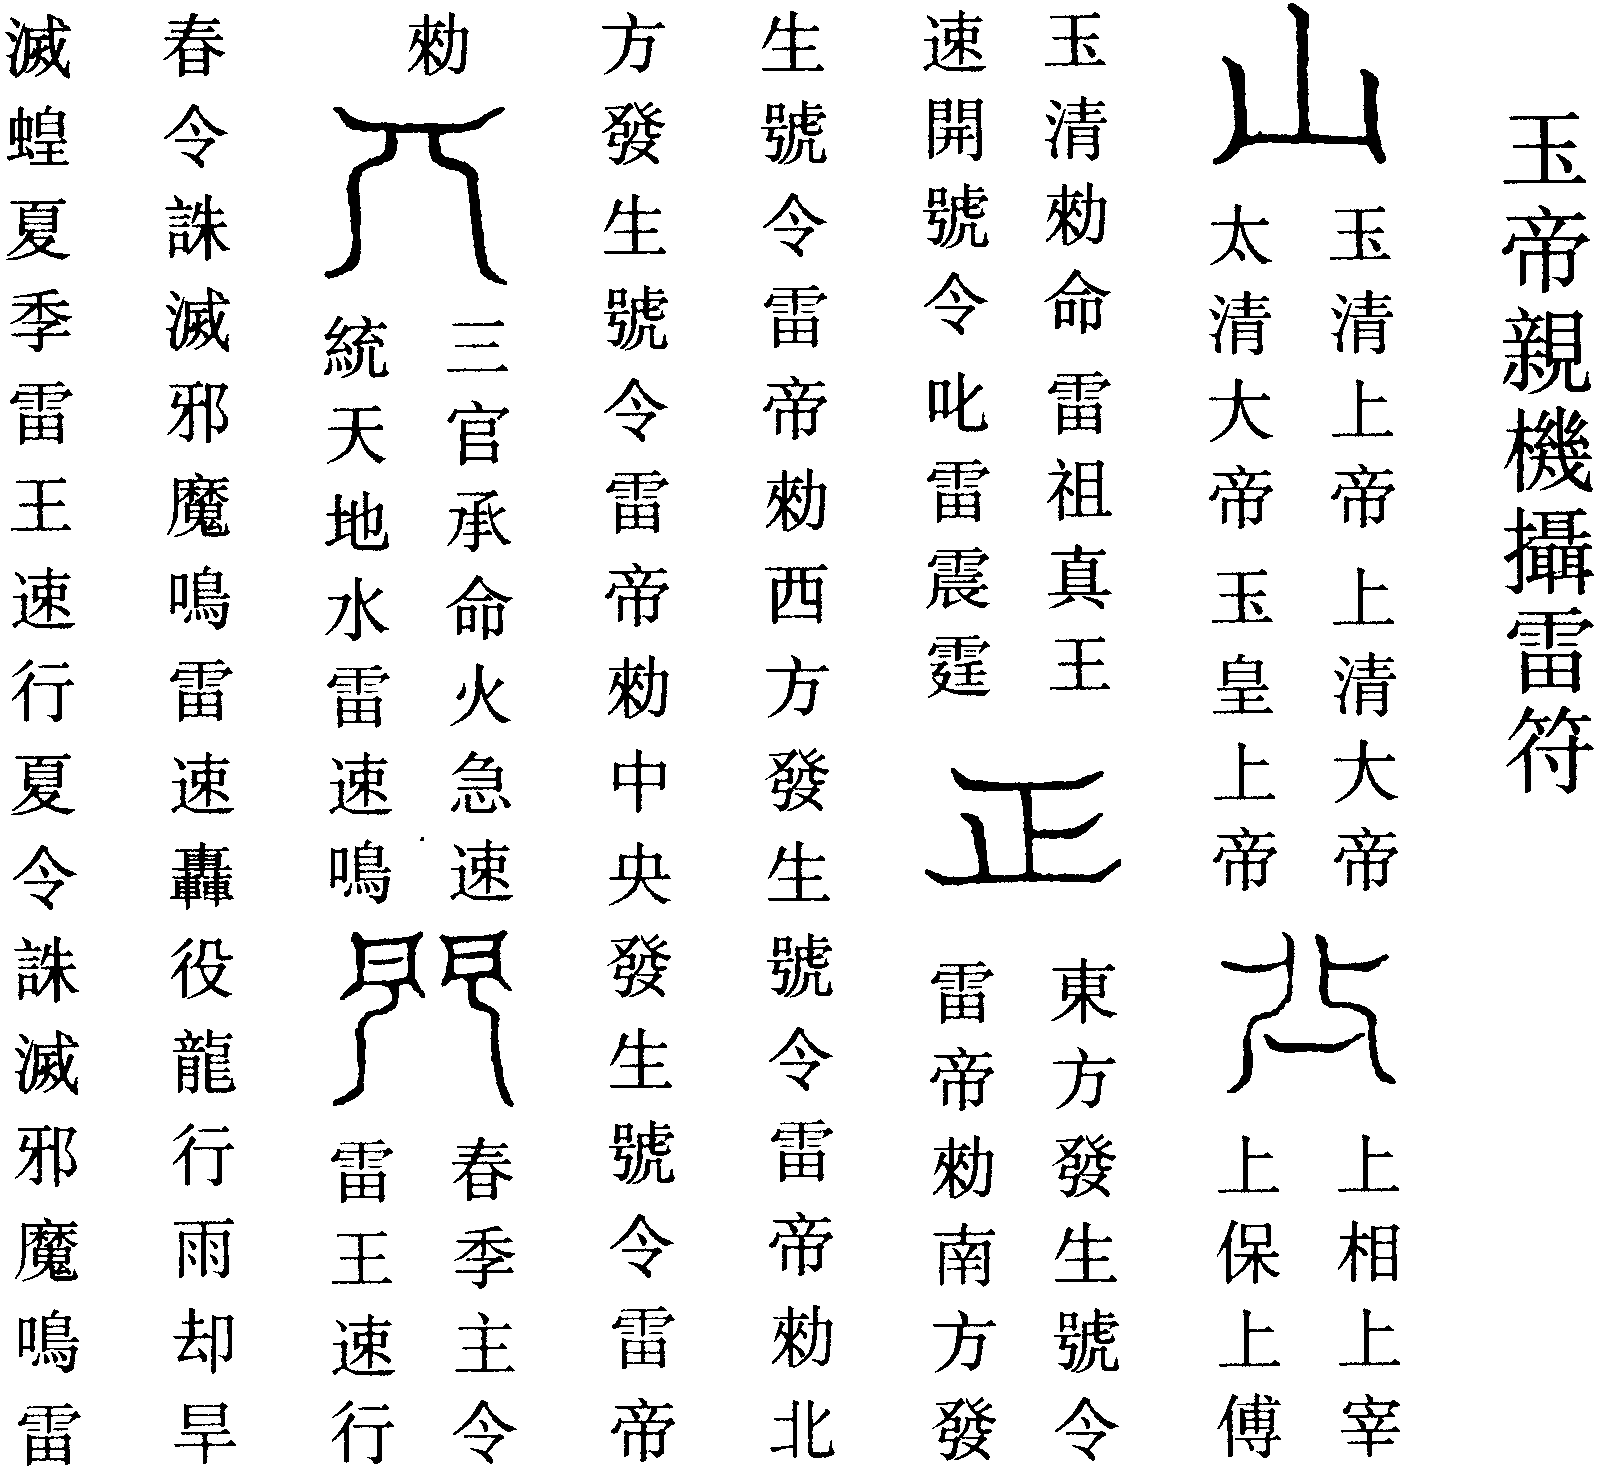 玉帝親機攝雷符
山
玉清上帝上清大帝
太清大帝玉皇上帝
上相上宰
上保上傅
玉清勑命雷祖真王
速開號令叱雷震霆
正
東方發生號令
雷帝勑南方發
生號令雷帝勑西方發生號令雷帝勑北
方發生號令雷帝勑中央發生號令雷帝
勑
三官承命火急速
統天地水雷速鳴
門
春季主令
雷王速行
春令誅滅邪魔鳴雷速轟役龍行雨却旱
滅蝗夏季雷王速行夏令誅滅邪魔鳴雷